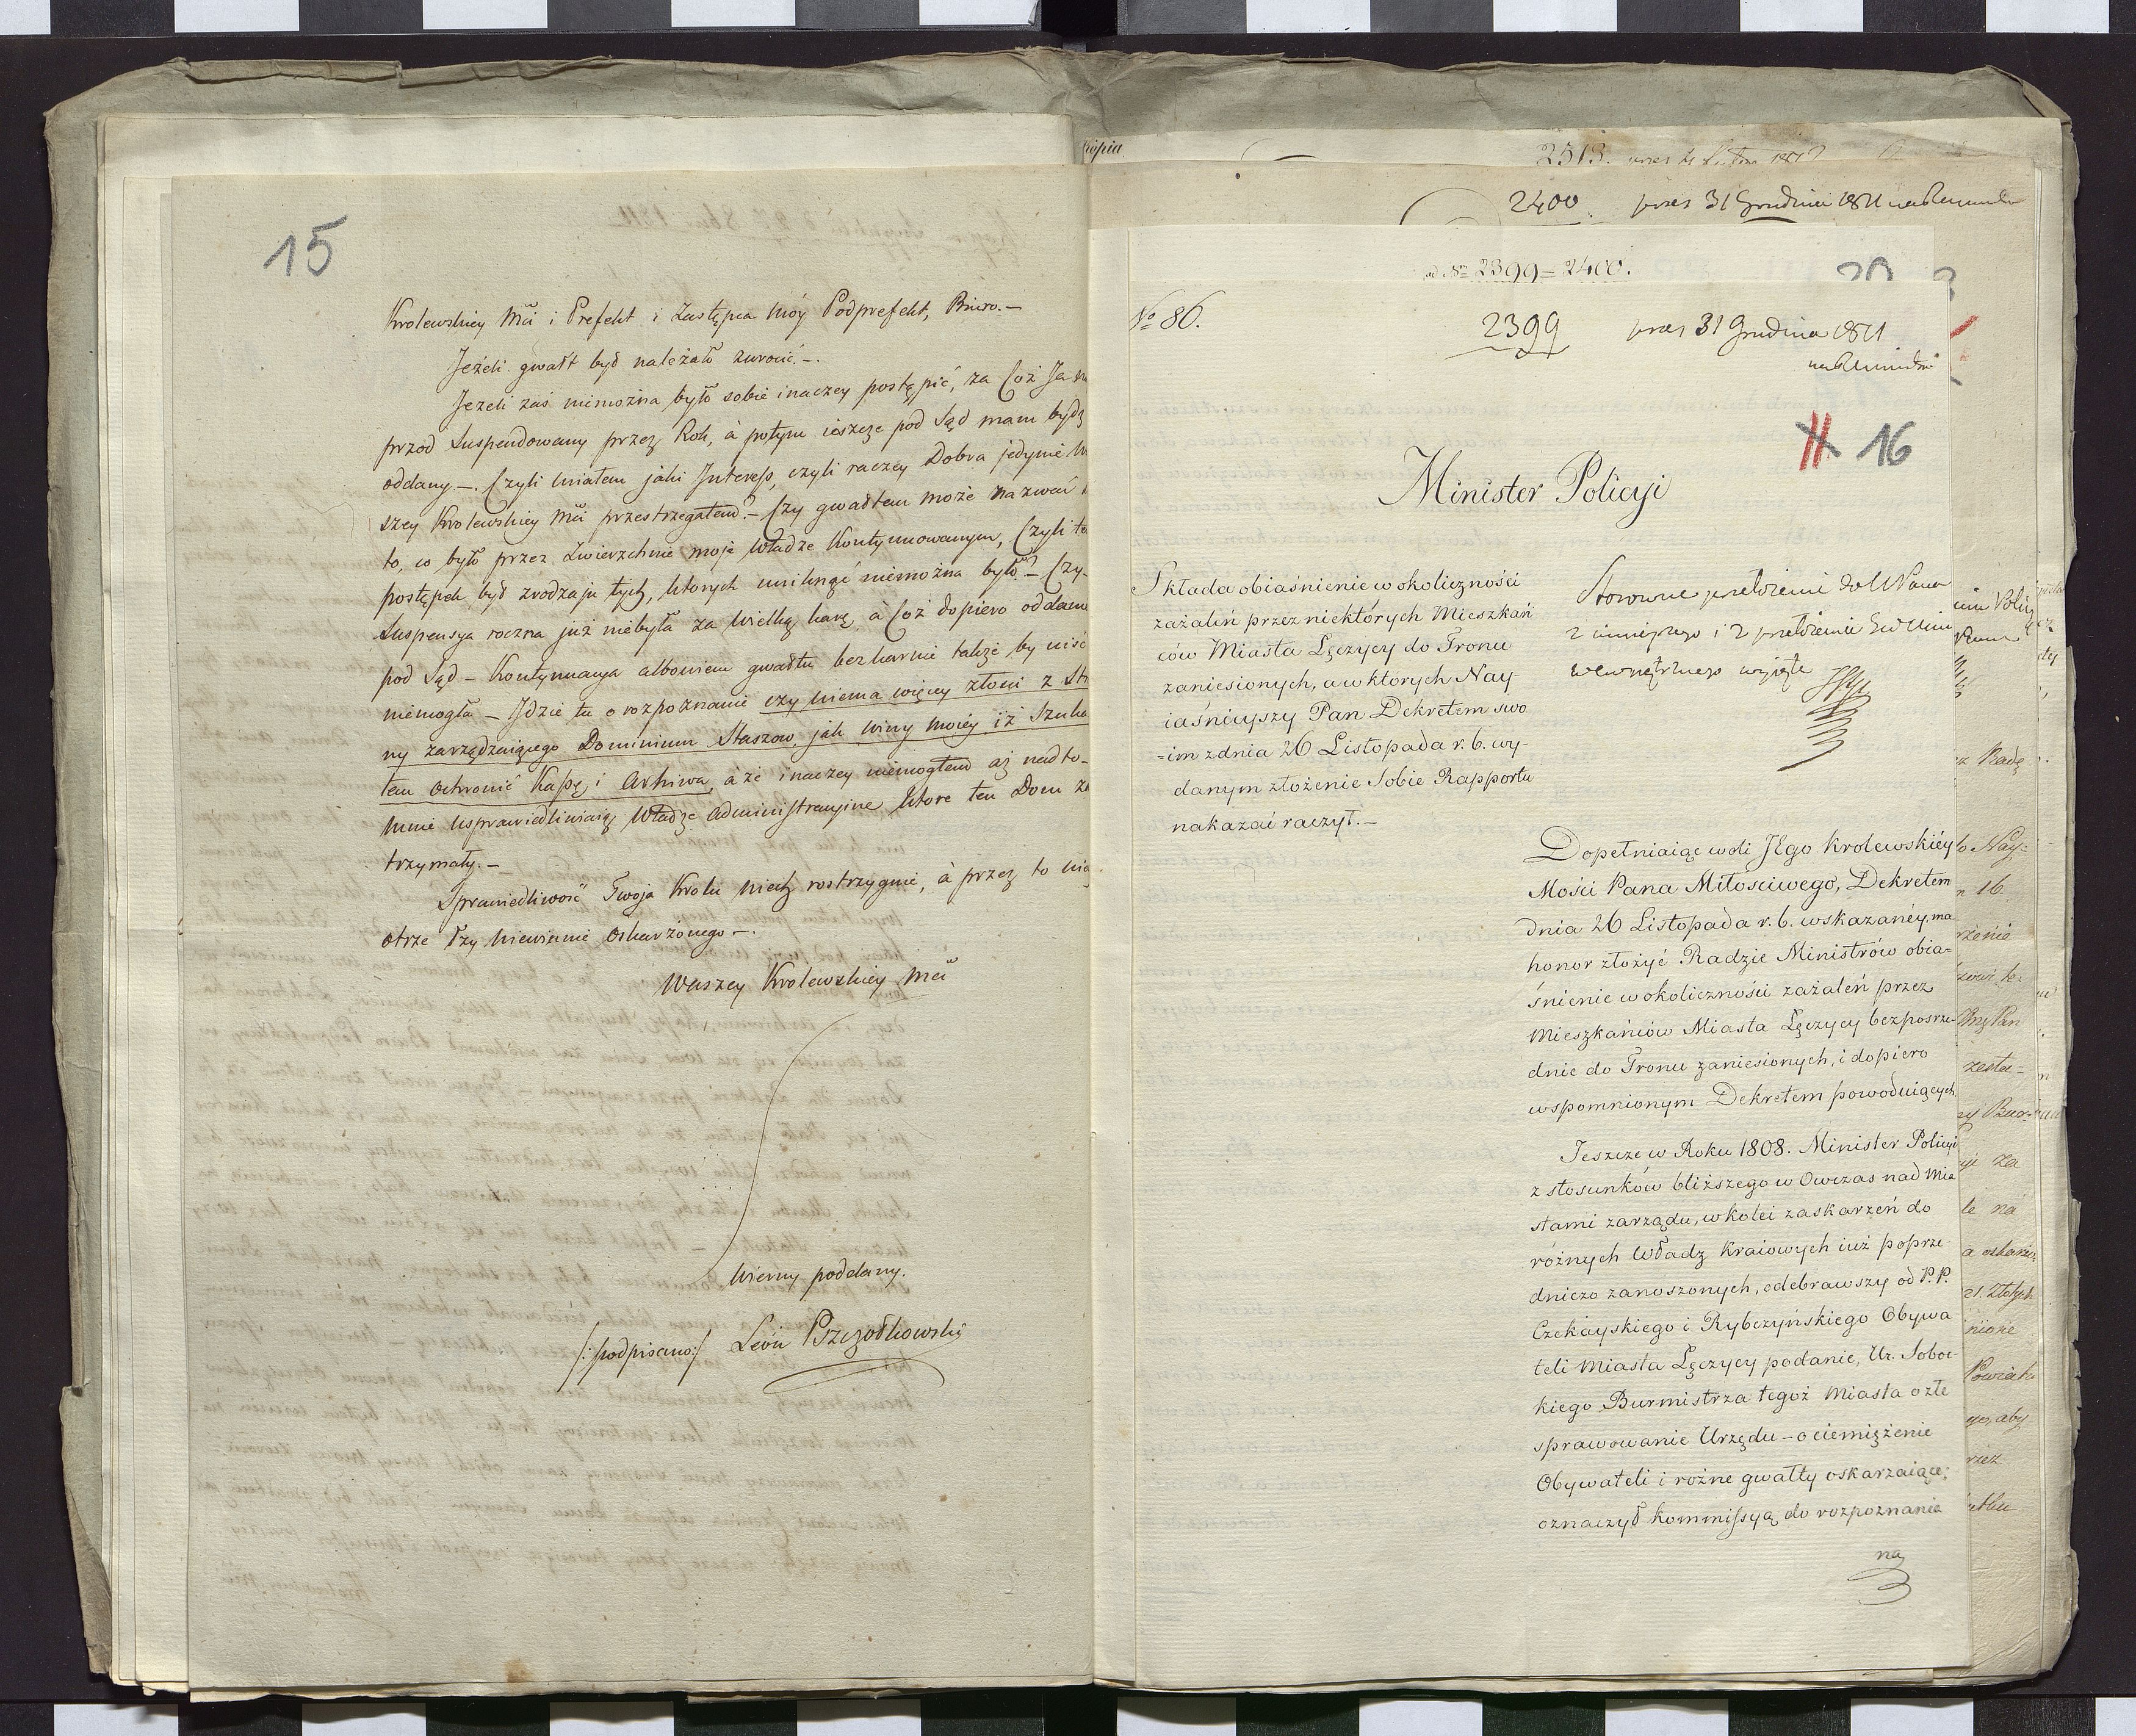 15
Krolewskiey Mći i Prefekt i Zastępca móy Podprefekt, Biuro.—
Jeżeli gwałt był należało zwrocić.—.
Jeżeli zaś niemożna było sobie inaczey postąpić, za Coż Ja
przod Suspendowany przez Rok, à potym ieszcze pod Sąd mam bydź
oddany —. Czyli miałem jaki Interess, czyli raczey Dobra jedynie
szey Krolewskiey Mći przestrzegałem? — Czy gwałtem może nazwać
to, co było przez Zwierzchnie moje Władze Kontynuowanym, Czyli
postępek był zrodzaju tych, ktorych uniknąć niemożna było? — Czy-
Suspensya roczna już niebyła za wielką karą, à Coż dopiero
pod Sąd — Kontynuacya albowiem gwałtu bezkarnie także by
niemogła — Jdzie tu o rozpoznanie czy niema więcey złości z
ny zarządzaiącego Dominium Staszow, jak winy moiéy iż Szuka
łem ochronić Kassę i Arhiwa, à że inaczey niemogłem aż nadto-
mnie usprawiedliwiaią Władze administracyine ktore ten Dom
trzymały.—
Sprawiedliwość Twoja Krolu niech rostrzygnie, à przez to
otrze łzy niewinnie oskarżonego —.
Waszey Krolewskiey Mći
wierny poddany.
/:podpisano:/ Leon Pszczołkowski
Kopia
2513.
2400. prez 31 Grudnia 1811
ad No 2399=2400.
No 86.
2399 prez 31 Grudnia 1811
16
Minister Policyi
Składa obiaśnienie w okoliczności
zażaleń przez niektórych Mieszkań
ców Miasta Łęczycy do Tronu
zaniesionych, a w ktorych Nay-
iaśnieyszy Pan Dekretem swo
=im z dnia 26 Listopada r. b. wy-
danym złożenie Sobie Rapportu
nakazać raczył.—
Stosowne przełożenie do
z ninieyszego i z przełożenia
wewnętrznego wyięte
Dopełniaiąc woli JEgo Krolewskiéy
Mości Pana Miłościwego, Dekretem
dnia 26 Listopada r. b. wskazanéy, ma
honor złożyć Radzie Ministrów obia=
śnienie w okoliczności zażaleń przez
Mieszkańców Miasta Łęczycy bezposrze-
dnie do Tronu zaniesionych, i dopiero
wspomnionym Dekretem powoduiących
Jeszcze w Roku 1808. Minister Policyi
z stosunków bliższego w Owczas nad Mia
stami zarządu, w kolei zaskarzeń do
różnych Władz Kraiowych iuż poprze-
dniczo zanoszonych, odebrawszy od P. P.
Czekayskiego i Rybczyńskiego Obywa
teli Miasta Łęczycy podanie, Ur. Soboc-
kiego Burmistrza tegoż Miasta o złe
sprawowanie Urzędu — o ciemiężenie
Obywateli i rożne gwałty oskarzaiące;
oznaczył Kommissyą do rozpoznania
na